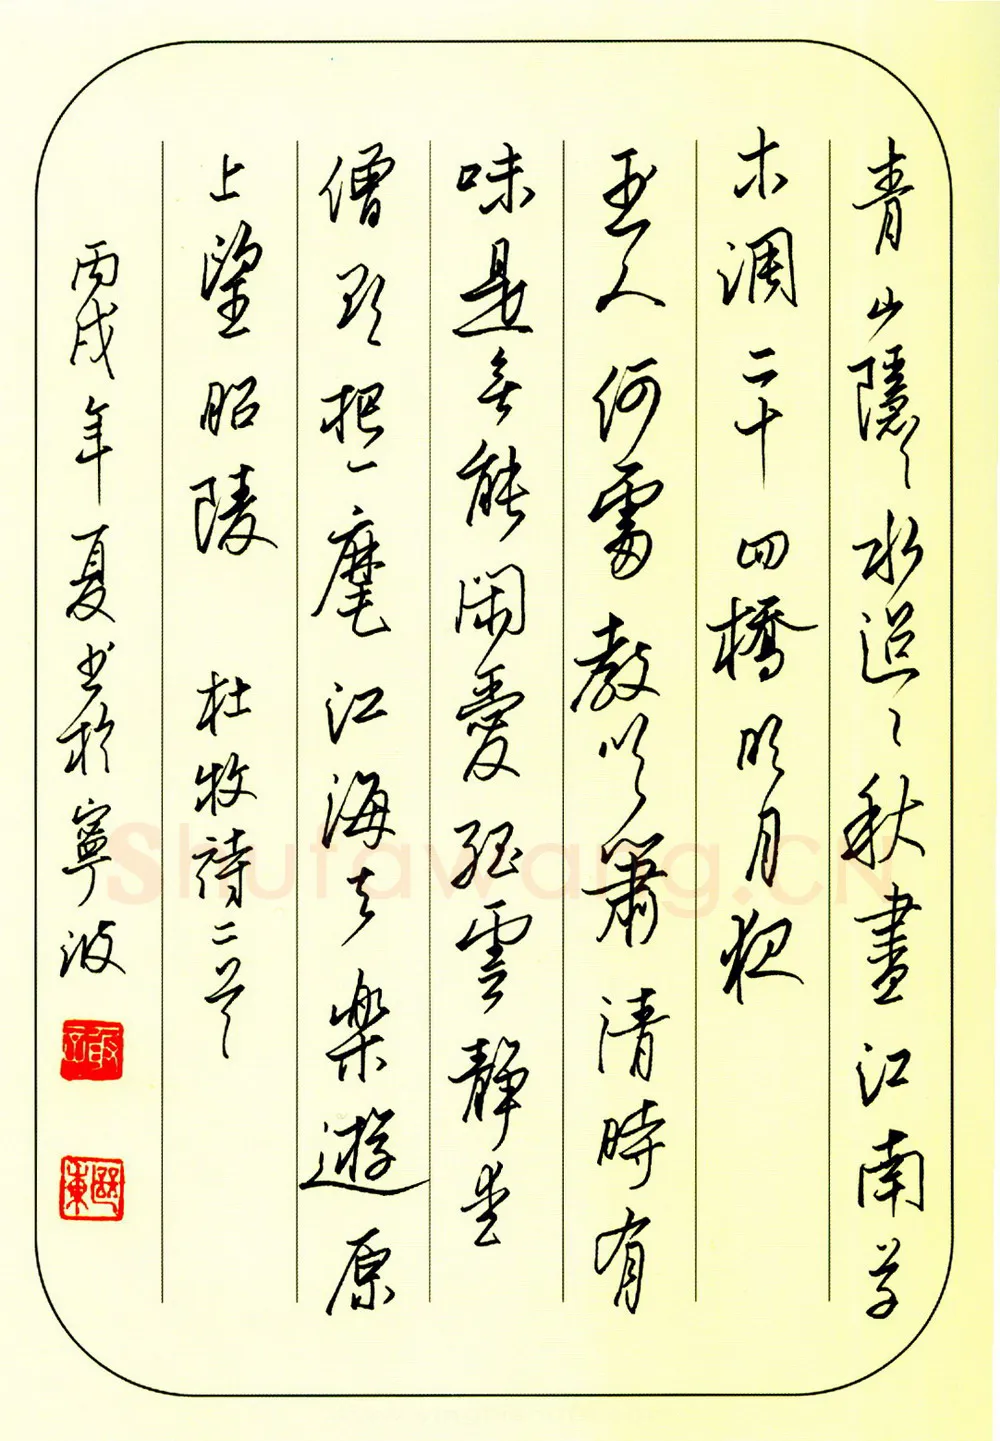 青山隱〻水迢〻秋盡江南草
木凋二十四橋明月夜
玉人何處教吹簫清時有
味是無能閑愛孤雲靜愛
僧欲把一麾江海去樂遊原
上望昭陵 杜牧詩二首
丙戌年夏书於寧波
Shufawang.CN